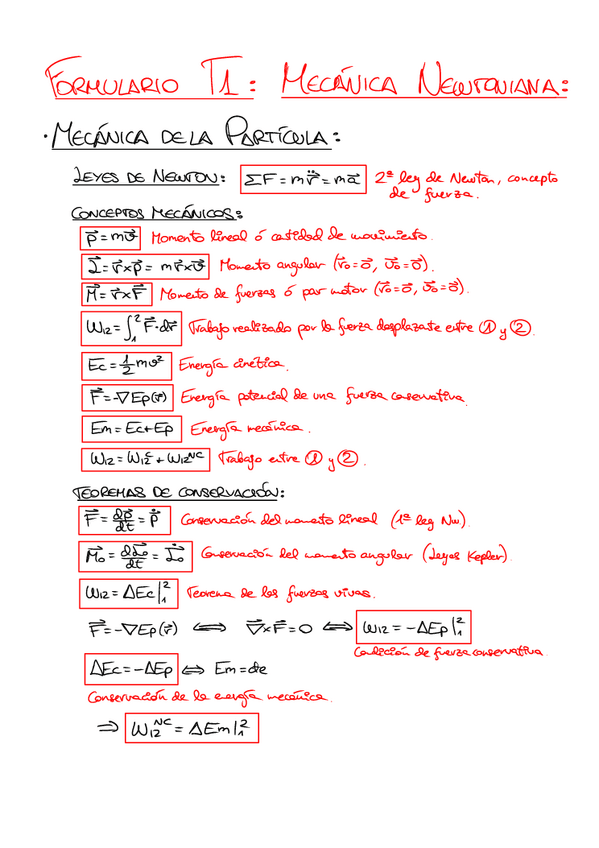 FORMULARIO T1: MECÁNICA NEWTONIANA:
· MECÁNICA DE LA PARTÍCULA:
LEYES DE NEWTON: ΣF = m r⃗̈ = m a⃗ 2ª ley de Newton, concepto
de fuerza.
CONCEPTOS MECÁNICOS:
p⃗ = m v⃗ Momento lineal ó cantidad de movimiento.
L⃗ = r⃗ x p⃗ = m r⃗ x v⃗ Momento angular (r⃗o = o⃗, v⃗o = o⃗).
M⃗ = r⃗ x F⃗ Momento de fuerzas ó par motor (r⃗o = o⃗, v⃗o = o⃗).
W12 = ∫₁² F⃗ · dr⃗ Trabajo realizado por la fuerza desplazante entre ① y ②.
Ec = ½ m v² Energía cinética.
F⃗ = -∇Ep(r⃗) Energía potencial de una fuerza conservativa.
Em = Ec + Ep Energía mecánica.
W12 = W12^C + W12^NC Trabajo entre ① y ②.
TEOREMAS DE CONSERVACIÓN:
F⃗ = dp⃗/dt = p⃗̇ Conservación del momento lineal (1ª ley Nw).
M⃗o = dL⃗o/dt = L⃗̇o Conservación del momento angular (Leyes Kepler).
W12 = ΔEc|₁² Teorema de las fuerzas vivas.
F⃗ = -∇Ep(r⃗) ⟺ ∇⃗ x F⃗ = 0 ⟺ W12 = -ΔEp|₁²
Condición de fuerza conservativa.
ΔEc = -ΔEp ⟺ Em = cte
Conservación de la energía mecánica.
⇒ W12^NC = ΔEm|₁²